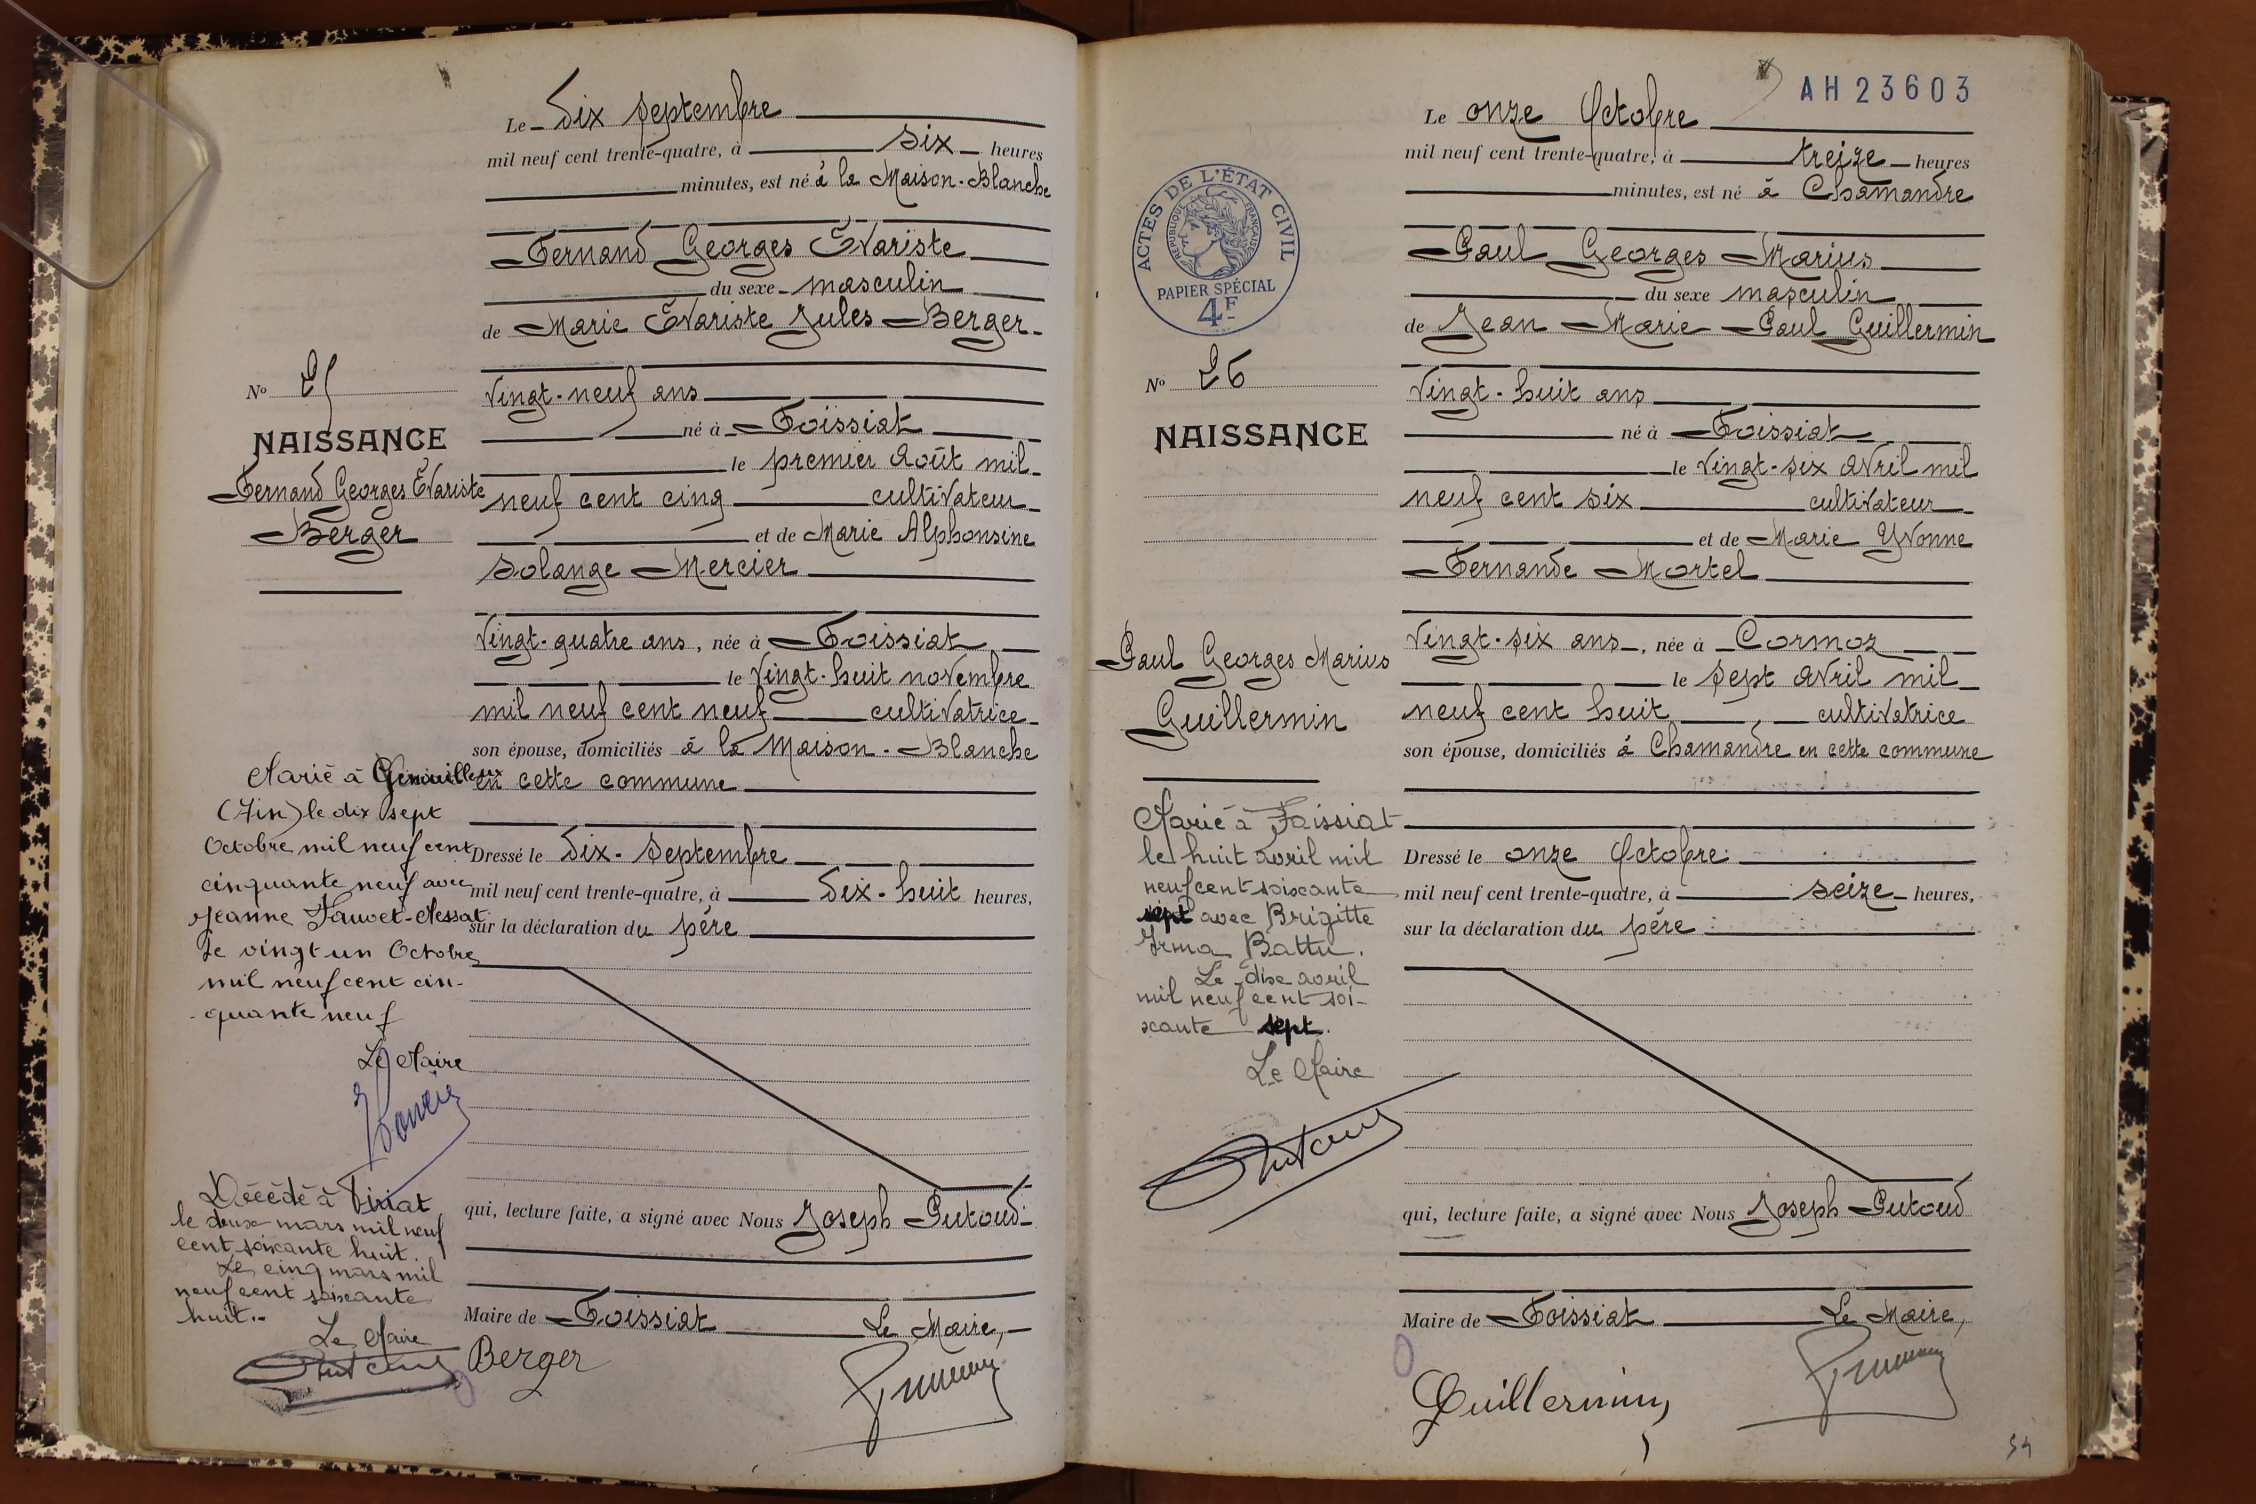 Le dix septembre
mil neuf cent trente-quatre, à six heures
minutes, est né à la Maison-Blanche
Fernand Georges Evariste
du sexe masculin
de Marie Evariste Jules Berger
vingt-neuf ans
né à Foissiat
le premier août mil
neuf cent cinq cultivateur
et de Marie Alphonsine
Solange Mercier
vingt-quatre ans, née à Foissiat
le vingt-huit novembre
mil neuf cent neuf cultivatrice
son épouse, domiciliés à la Maison-Blanche
en cette commune
Dressé le dix-septembre
mil neuf cent trente-quatre, à dix-huit heures,
sur la déclaration du père
qui, lecture faite, a signé avec Nous Joseph Putoud
Maire de Foissiat Le Maire,
Berger
No 25
NAISSANCE
Fernand Georges Evariste
Berger
Marié à Genouilleux
(Ain) le dix sept
Octobre mil neuf cent
cinquante neuf avec
Jeanne
Le vingt un Octobre
mil neuf cent cin-
quante neuf
Le Maire
Décédé à Viriat
le deux mars mil neuf
cent soixante huit.
Le cinq mars mil
neuf cent soixante
huit.-
Le Maire
AH 23603
Le onze Octobre
mil neuf cent trente-quatre, à treize heures
minutes, est né à Chamandre
Paul Georges Marius
du sexe masculin
de Jean Marie Paul Guillermin
vingt-huit ans
né à Foissiat
le vingt-six avril mil
neuf cent six cultivateur
et de Marie Yvonne
Fernande Mortel
vingt-six ans, née à Cormoz
le sept avril mil
neuf cent huit cultivatrice
son épouse, domiciliés à Chamandre en cette commune
Dressé le onze Octobre
mil neuf cent trente-quatre, à seize heures,
sur la déclaration du père
qui, lecture faite, a signé avec Nous Joseph Putoud
Maire de Foissiat Le Maire,
Guillermin
ACTES DE L'ÉTAT CIVIL
RÉPUBLIQUE FRANÇAISE
PAPIER SPÉCIAL
4F
No 26
NAISSANCE
Paul Georges Marius
Guillermin
Marié à Foissiat
le huit avril mil
neuf cent soixante
sept avec Brigitte
Irma Battu.
Le dix avril
mil neuf cent soi-
xante sept.
Le Maire
54